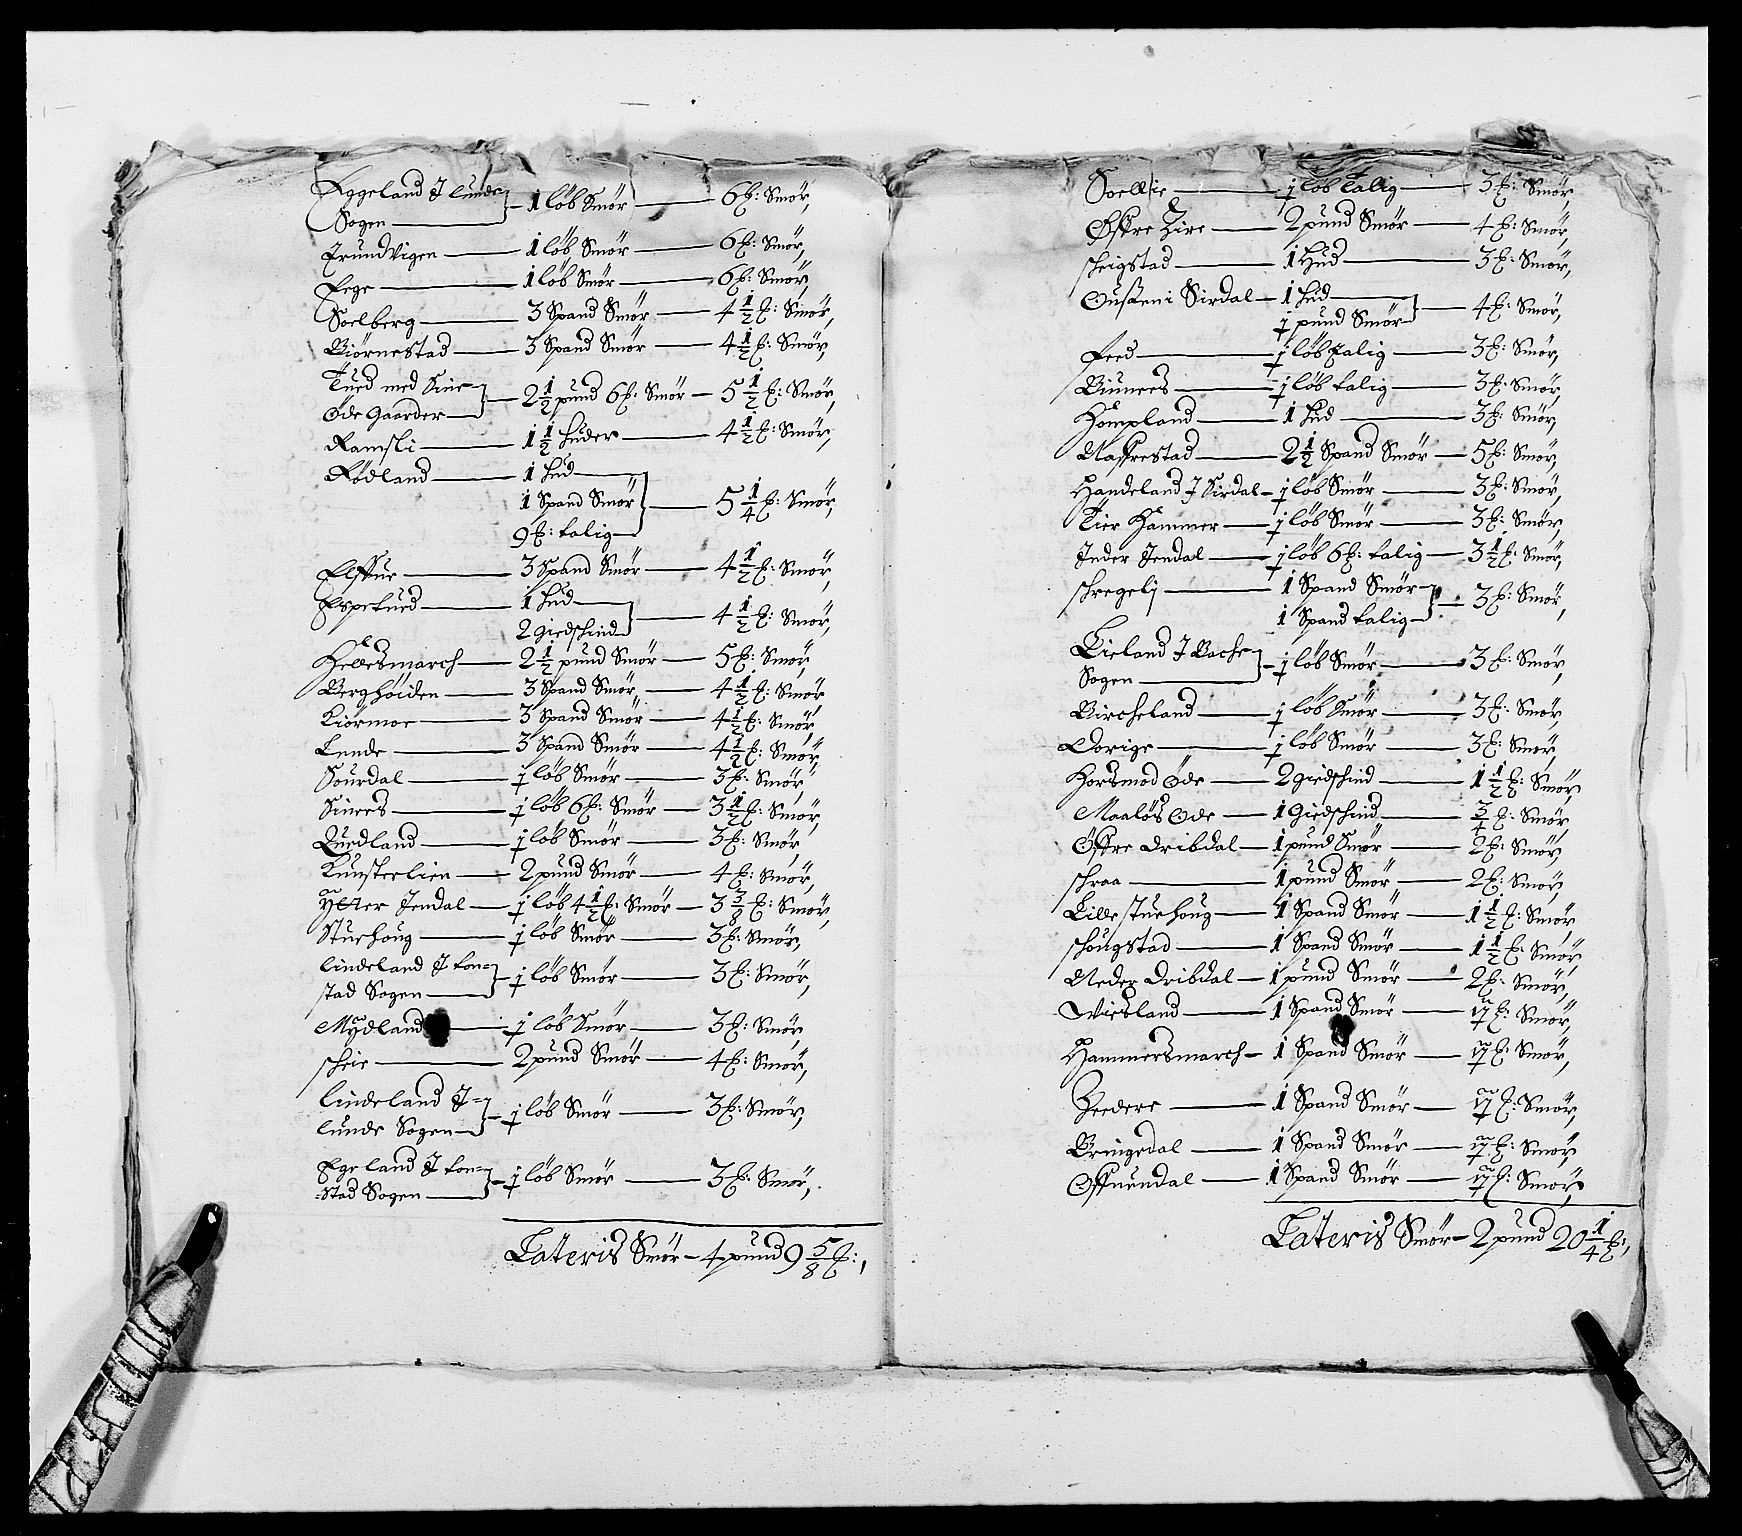 Eggeland J Lunde Sogen — 1 løb Smör — 6 ℔: Smör,
TrundVigen — 1 löb Smör — 6 ℔: Smör,
Fege — 1 löb Smör — 6 ℔: Smör,
Soelberg — 3 Spand Smör — 4 1/2 ℔: Smör,
Biörnestad — 3 Spand Smör — 4 1/2 ℔: Smör,
Tued med Sine öde Gaarder — 2 1/2 pund 6 ℔: Smör — 5 1/2 ℔: Smör,
Ramsli — 1 1/2 huder — 4 1/2 ℔: Smör,
Rödland — 1 hud
1 Spand Smör — 5 1/4 ℔: Smör,
9 ℔: talig
3 Spand Smör — 4 1/2 ℔: Smör,
Espetued — 1 hud
2 giedschind — 4 1/2 ℔: Smör,
Hedesmarch — 2 1/2 pund Smör — 5 ℔: Smör,
Berghöiden — 3 Spand Smör, — 4 1/2 ℔: Smör
Kiörmoe — 3 Spand Smör — 4 1/2 ℔: Smör,
Lunde — 3 Spand Smör — 4 1/2 ℔: Smör,
Sourdal — 1/2 löb Smör — 3 ℔: Smör,
Sinnes — 1/2 löb 6 ℔: Smör — 3 1/2 ℔: Smör,
Quedland — 1/2 löb Smör — 3 ℔: Smör
Kunsterlien — 2 pund Smör — 4 ℔: Smör,
Ytter Jendal — 1/2 löb 4 1/2 ℔: Smör — 3 3/8 ℔: Smör,
Stuehoug — 1/2 löb Smör — 3 ℔: Smör,
lindeland J ton=
stad Sogen — 1/2 löb Smör — 3 ℔: Smör,
Mydland — 1/2 löb Smör — 3 ℔: Smör
scheie — 2 pund Smör — 4 ℔: Smör,
lindeland J=
lunde Sogen — 1/2 löb Smör — 3 ℔: Smör,
Egeland J ton=
stad Sogen — 1/2 löb Smör — 3 ℔: Smör,
Lateris Smör — 4 pund 9 5/8 ℔:,
1/2 löb talig — 3 ℔: Smör,
Öffre Zire — 2 pund Smör — 4 ℔: Smör,
schrigstad — 1 Hud — 3 ℔: Smör,
Ousken i Sirdal — 1 hud
1/2 pund Smör — 4 ℔: Smör,
Feed — 1/2 löb talig — 3 ℔: Smör,
Biunees — 1/2 löb talig — 3 ℔: Smör,
Kompland — 1 hud — 3 ℔: Smör,
Naffrestad — 2 1/2 Spand Smör — 5 ℔: Smör,
Handeland J Sirdal — 1/2 löb Smör — 3 ℔: Smör,
Tier Hammer — 1/2 löb Smör — 3 ℔: Smör,
Inder Jendal — 1/2 löb 6 ℔: talig — 3 1/2 ℔: Smör,
schregelj — 1 Spand Smör
1 Spand talig — 3 ℔: Smör,
Lieland J Bache
Sogen — 1/2 löb Smör — 3 ℔: Smör,
Bircheland — 1/2 löb Smör — 3 ℔: Smör,
Dorige — 1/2 löb Smör — 3 ℔: Smör,
Horsmod Öde — 2 giedschind — 1 1/2 ℔: Smör,
Maalös Öde — 1 Giedschind — 3/4 ℔: Smör,
Öffre Dribdal — 1 pund Smör — 2 ℔: Smör,
schraa — 1 pund Smör — 2 ℔: Smör,
Lille stuehoug — 1 Spand Smör — 1 1/2 ℔: Smör,
schougstad — 1 Spand Smör — 1 1/2 ℔: Smör,
Neder Dribdal — 1 pund Smör — 2 ℔: Smör,
Wiesland — 1 Spand Smör — 1 1/2 ℔: Smör,
Hammersmarch — 1 Spand Smör — 1 1/2 ℔: Smör,
Heedere — 1 Spand Smör — 1 1/2 ℔: Smör,
Bringedal — 1 Spand Smör — 1 1/2 ℔: Smör,
Offuendal — 1 Spand Smör — 1 1/2 ℔: Smör,
Lateris Smör — 2 pund 20 1/4 ℔:,